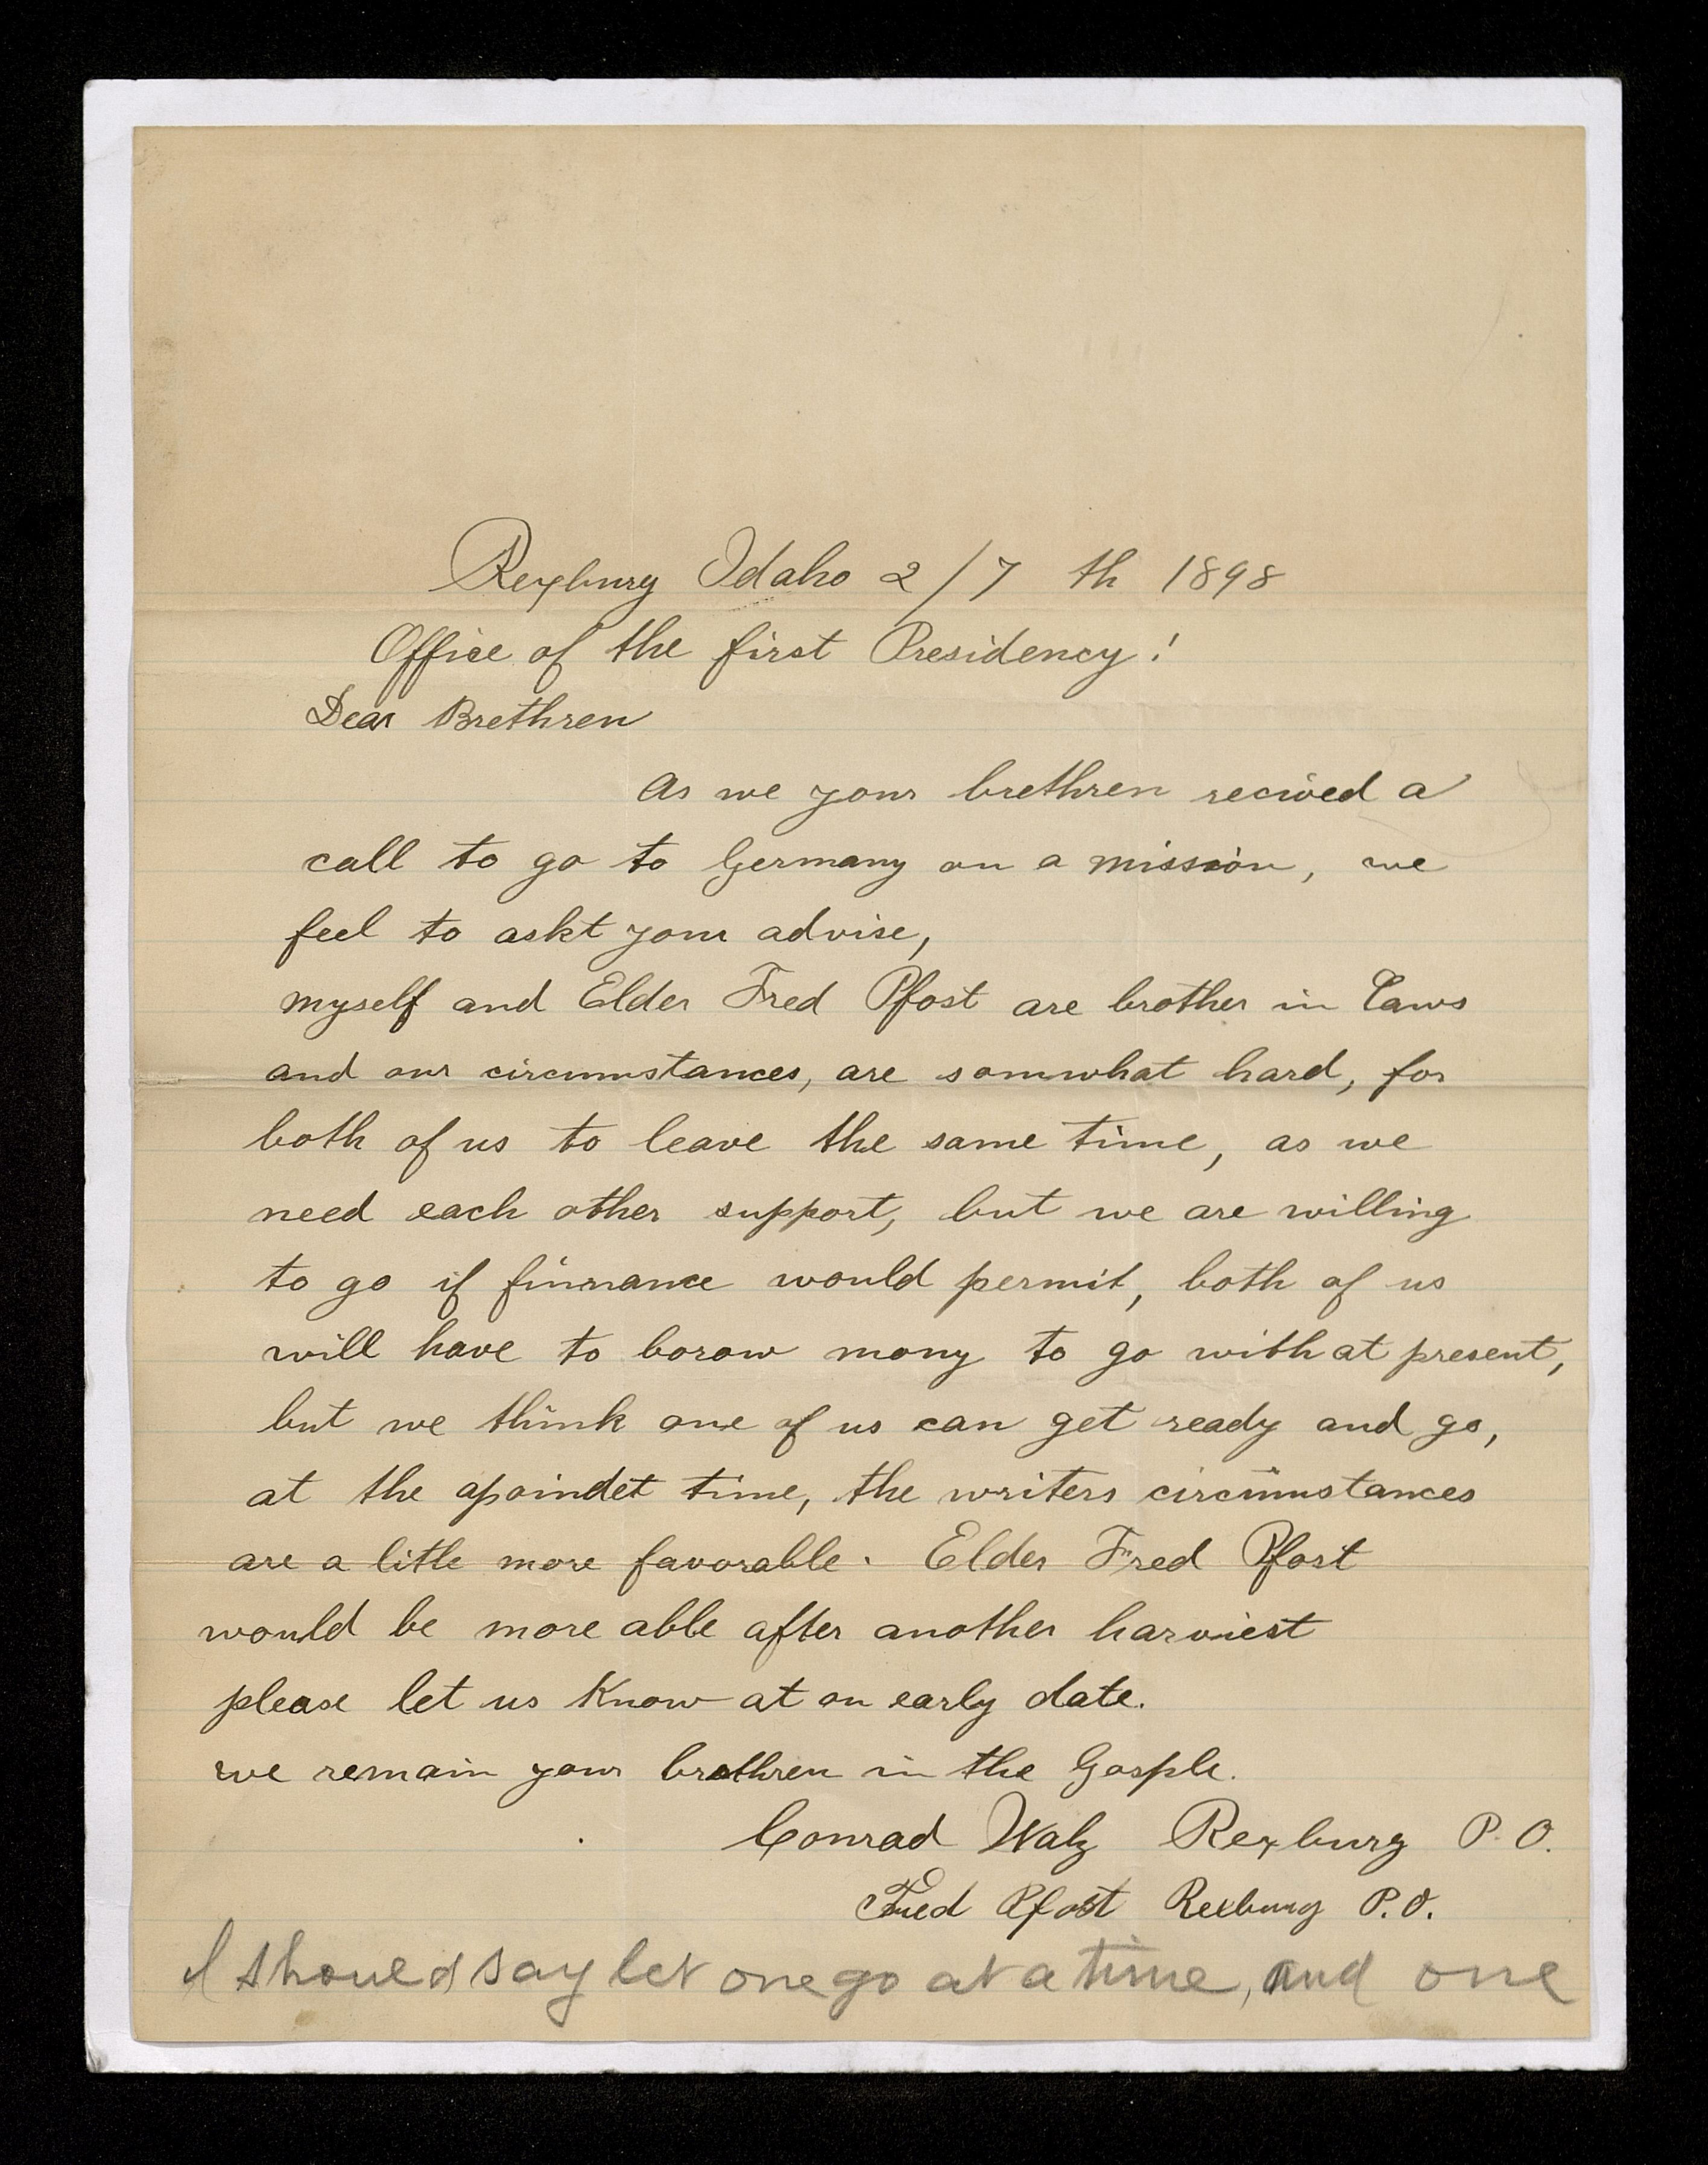 Rexburg Idaho 2/7 th 1898
Office of the first Presidency!
Dear Brethren
As we your brethren recived a
call to go to Germany on a mission, we
feel to askt your advise,
myself and Elder Fred Pfost are brother in Laws
and our circumstances, are somwhat hard, for
both of us to leave the same time, as we
need each other support, but we are willing
to go if finnance would permit, both of us
will have to borow mony to go with at present,
but we think one of us can get ready and go,
at the apoindet time, the writers circumstances
are a litle more favorable. Elder Fred Pfost
would be more able after another harviest
please let us Know at an early date.
we remain your brethren in the Gosple.
Conrad Walz Rexburg P.O.
Fred Pfost Rexburg P.O.
I should say let one go at a time, and one